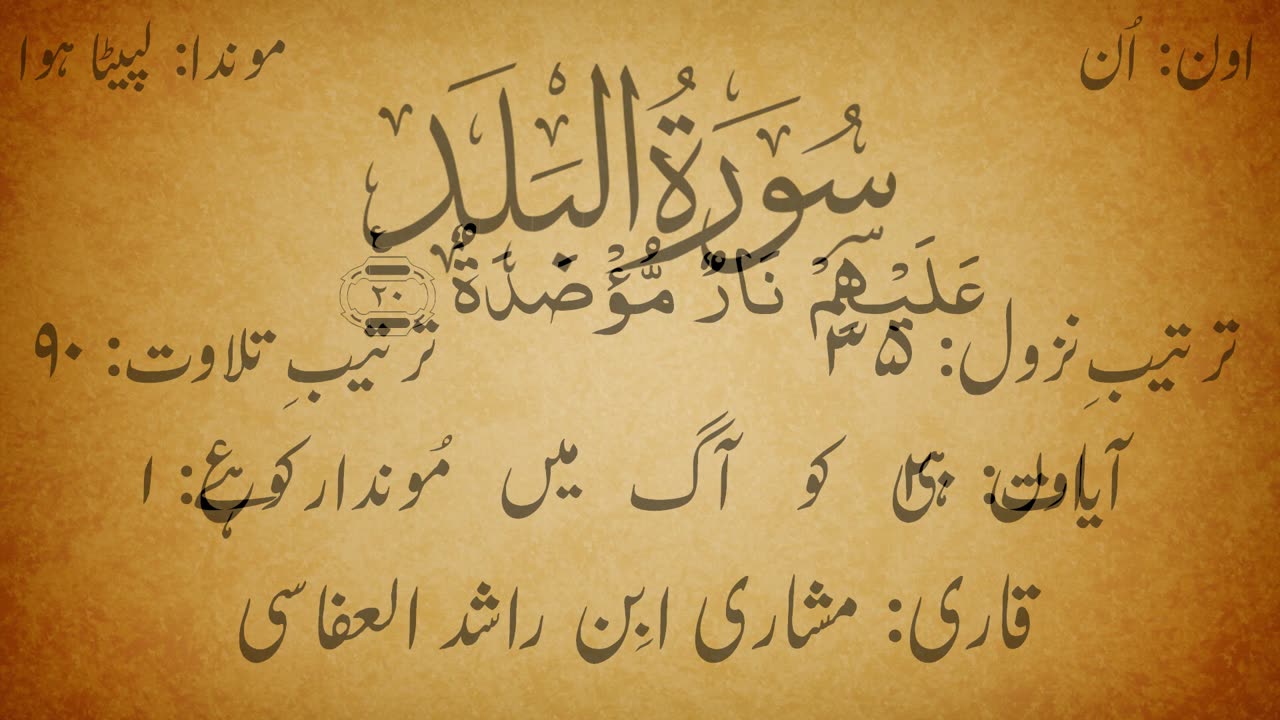 اون: اُن موندا: لپیٹا ہوا
سُورَةُ الْبَلَدِ
عَلَيْهِمْ نَارٌ مُّؤْصَدَةٌ ٢٠
ترتیبِ نزول: ۳۵ ترتیبِ تلاوت: ۹۰
آیات: ۲۰ رکوع: ۱
ہی کو آگ میں مُوندا ہے
قاری: مشاری ابِن راشد العفاسی